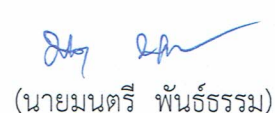 (นายมนตรี พันธ์ธรรม)